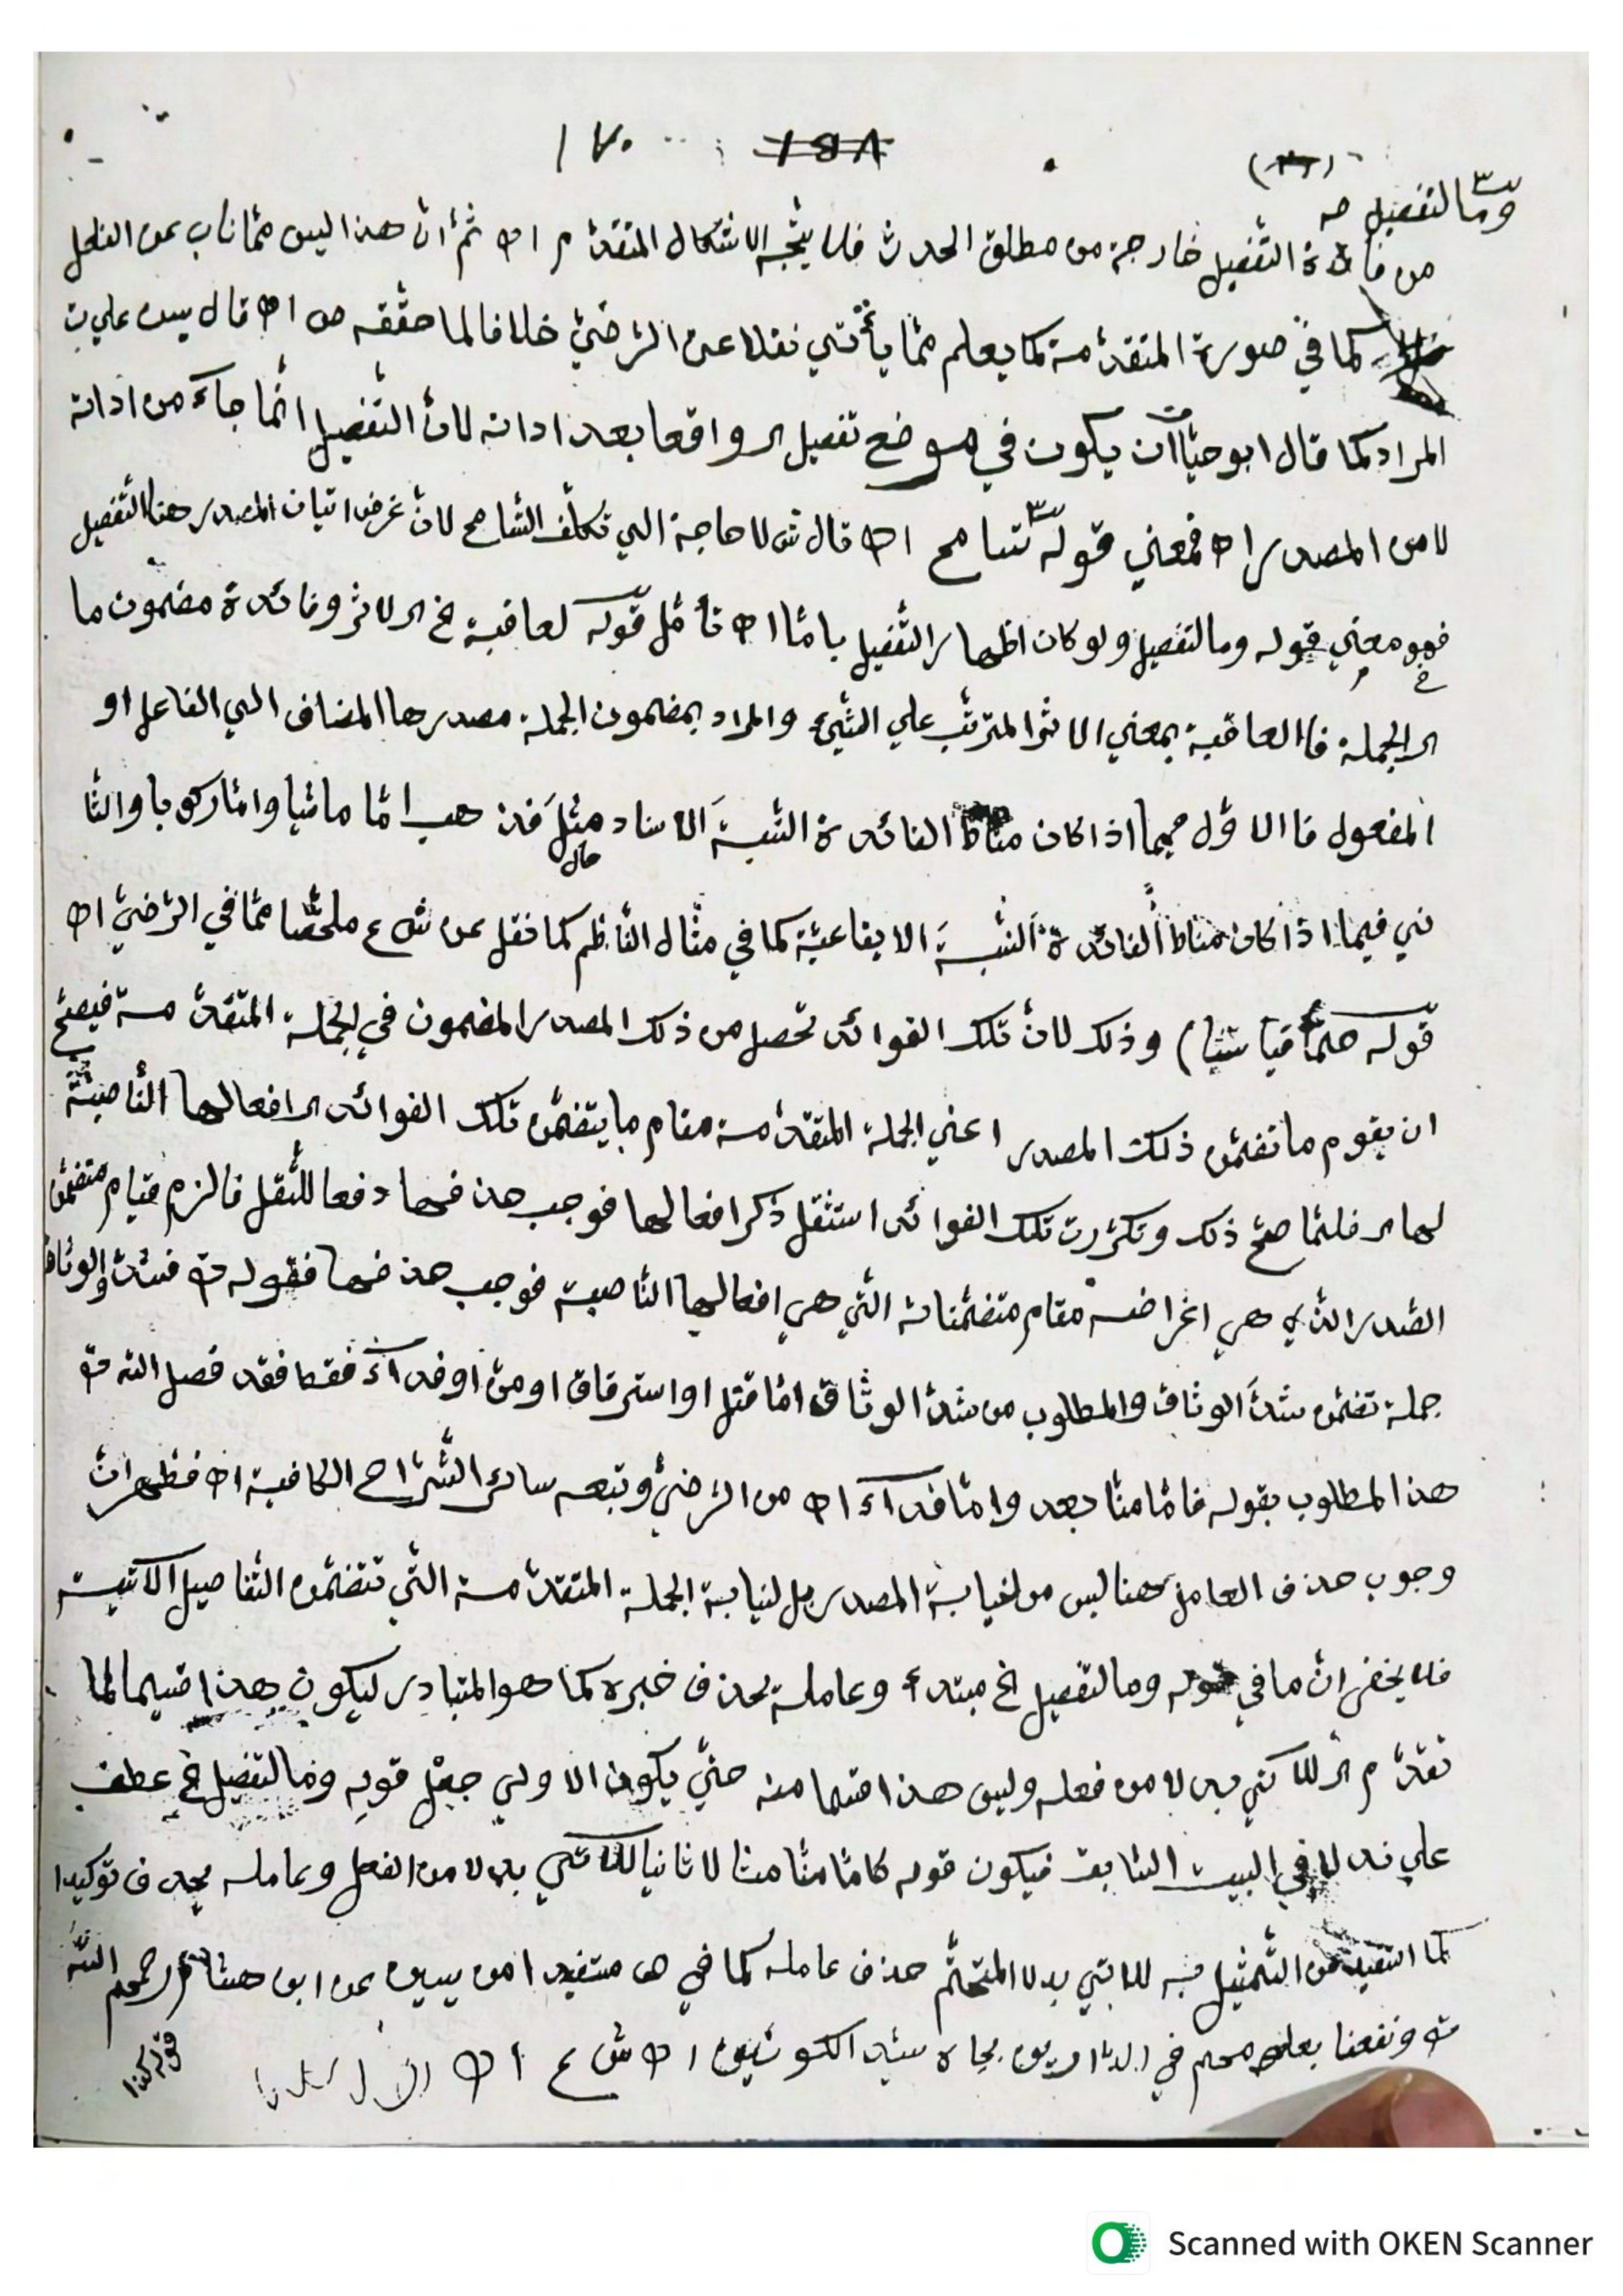 ١٧٠
وما لتفصيل صه
من فائدة التفصيل خارجة من مطلق الحدث فلا يتجه الاشكال المتقدم اه ثم ان هذا ليس مما ناب عن الفعل
كما في صورة المتقدمة كما يعلم مما يأتي نقلا عن الرضي خلافا لما حققه ص اه قال يس علي
المراد كما قال ابو حيان ان يكون في موضع تفصيل الـ واقعا بعد اداته لان التفصيل انما جاء من اداته
لا من المصدر اه فمعني قوله تسامح اه قال ش لا حاجة الي تكلف التسامح لان غرض اتيان المصدر هنا التفصيل
فهو معني قوله وما لتفصيل ولو كان اظهار التفصيل باما اه تأمل قوله لعاقبة الخ الـ لاثر وفائدة مضمون ما
الـ الجملة فالعاقبة بمعني الاثر المترتب علي الشيء والمراد بمضمون الجملة مصدرها المضاف الي الفاعل او
المفعول فالاول فيما اذا كان مناط الفائدة النسبة الاسناد مثل فذهب اما ماشيا واما ركوبا والثا
ني فيما اذا كان مناط الفائدة النسبة الايقاعية كما في مثال الناظم كما نقل عن ش ع ملخصا مما في الرضي اه
قوله حتما قياسيا) وذلك لان تلك الفوائد تحصل من ذلك المصدر المضمون في الجملة المتقدمة فيصح
ان يقوم ما تضمن ذلك المصدر اعني الجملة المتقدمة مقام ما يتضمن تلك الفوائد الـ افعالها الناصبة
لها الـ فلما صح ذلك وتكررت تلك الفوائد استثقل ذكر افعالها فوجب حذفها دفعا للثقل فالزم قيام متضمن
المصدر الذي هي اغراضه مقام متضمناته التي هي افعالها الناصبة فوجب حذفها فقوله تع فشدوا الوثاق
جملة تضمن شد الوثاق والمطلوب من شد الوثاق اما قتل او استرقاق او من او فداء فقط فقد فصل الله تع
هذا المطلوب بقوله فاما منا بعد واما فداء اه من الرضي وتبعه سائر الشراح الكافية اه فظهر ان
وجوب حذف العامل هنا ليس من نيابة المصدر بل لنيابة الجملة المتقدمة التي تتضمن التفاصيل الآتية
فلا يخفي ان ما في قوله وما لتفصيل الخ مبتدء وعامله يحذف خبره كما هو المتبادر ليكون هذا قسيما لما
تقدم الـ للاتي بدلا من فعله وليس هذا قسما منه حتي يكون الاولي جعل قوله وما لتفصيل الخ عطف
علي ندلا في البيت السابق فيكون قوله كاما منا مثالا ثانيا للاتي بدلا من الفعل وعامله يحذف توكيدا
كما استفيد من التمثيل به للاتي بدلا المتحتم حذف عامله كما في ص مستفيدا من يس عن ابن هشام رحمهم الله
تع ونفعنا بعلومهم في الدارين بجاه سيد الكونين اه ش ع اه
قوله كذا
Scanned with OKEN Scanner